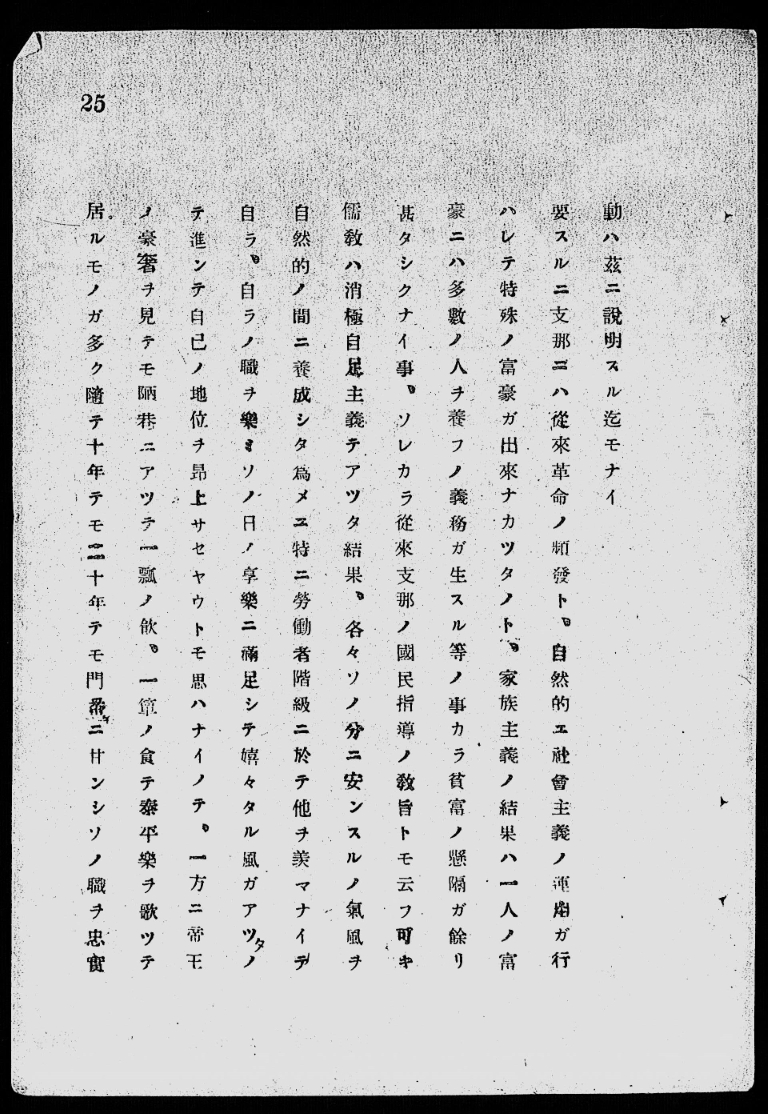 25
動ハ茲ニ說明スル迄モナイ
要スルニ支那ニハ從來革命ノ頻發ト。自然的エ社會主義ノ運用ガ行
ハレテ特殊ノ富豪ガ出來ナカツタノト。家族主義ノ結果ハ一人ノ富
豪ニハ多數ノ人ヲ養フノ義務ガ生スル等ノ事カラ貧富ノ懸隔ガ餘リ
甚タシクナイ事。ソレカラ從來支那ノ國民指導ノ敎旨トモ云フ可キ
儒敎ハ消極自足主義テアツタ結果。各々ソノ分ニ安ンスルノ氣風ヲ
自然的ノ間ニ養成シタ爲メエ特ニ勞働者階級ニ於テ他ヲ羨マナイデ
自ラ。自ラノ職ヲ樂ミソノ日ノ享樂ニ滿足シテ嬉々タル風ガアツタノ
テ進ンテ自己ノ地位ヲ昂上サセヤウトモ思ハナイノテ。一方ニ帝王
ノ豪奢ヲ見テモ陋巷ニアツテ一瓢ノ飮。一簞ノ食テ泰平樂ヲ歌ツテ
居ルモノガ多ク隨テ十年テモ二十年テモ門番ニ甘ンシソノ職ヲ忠實